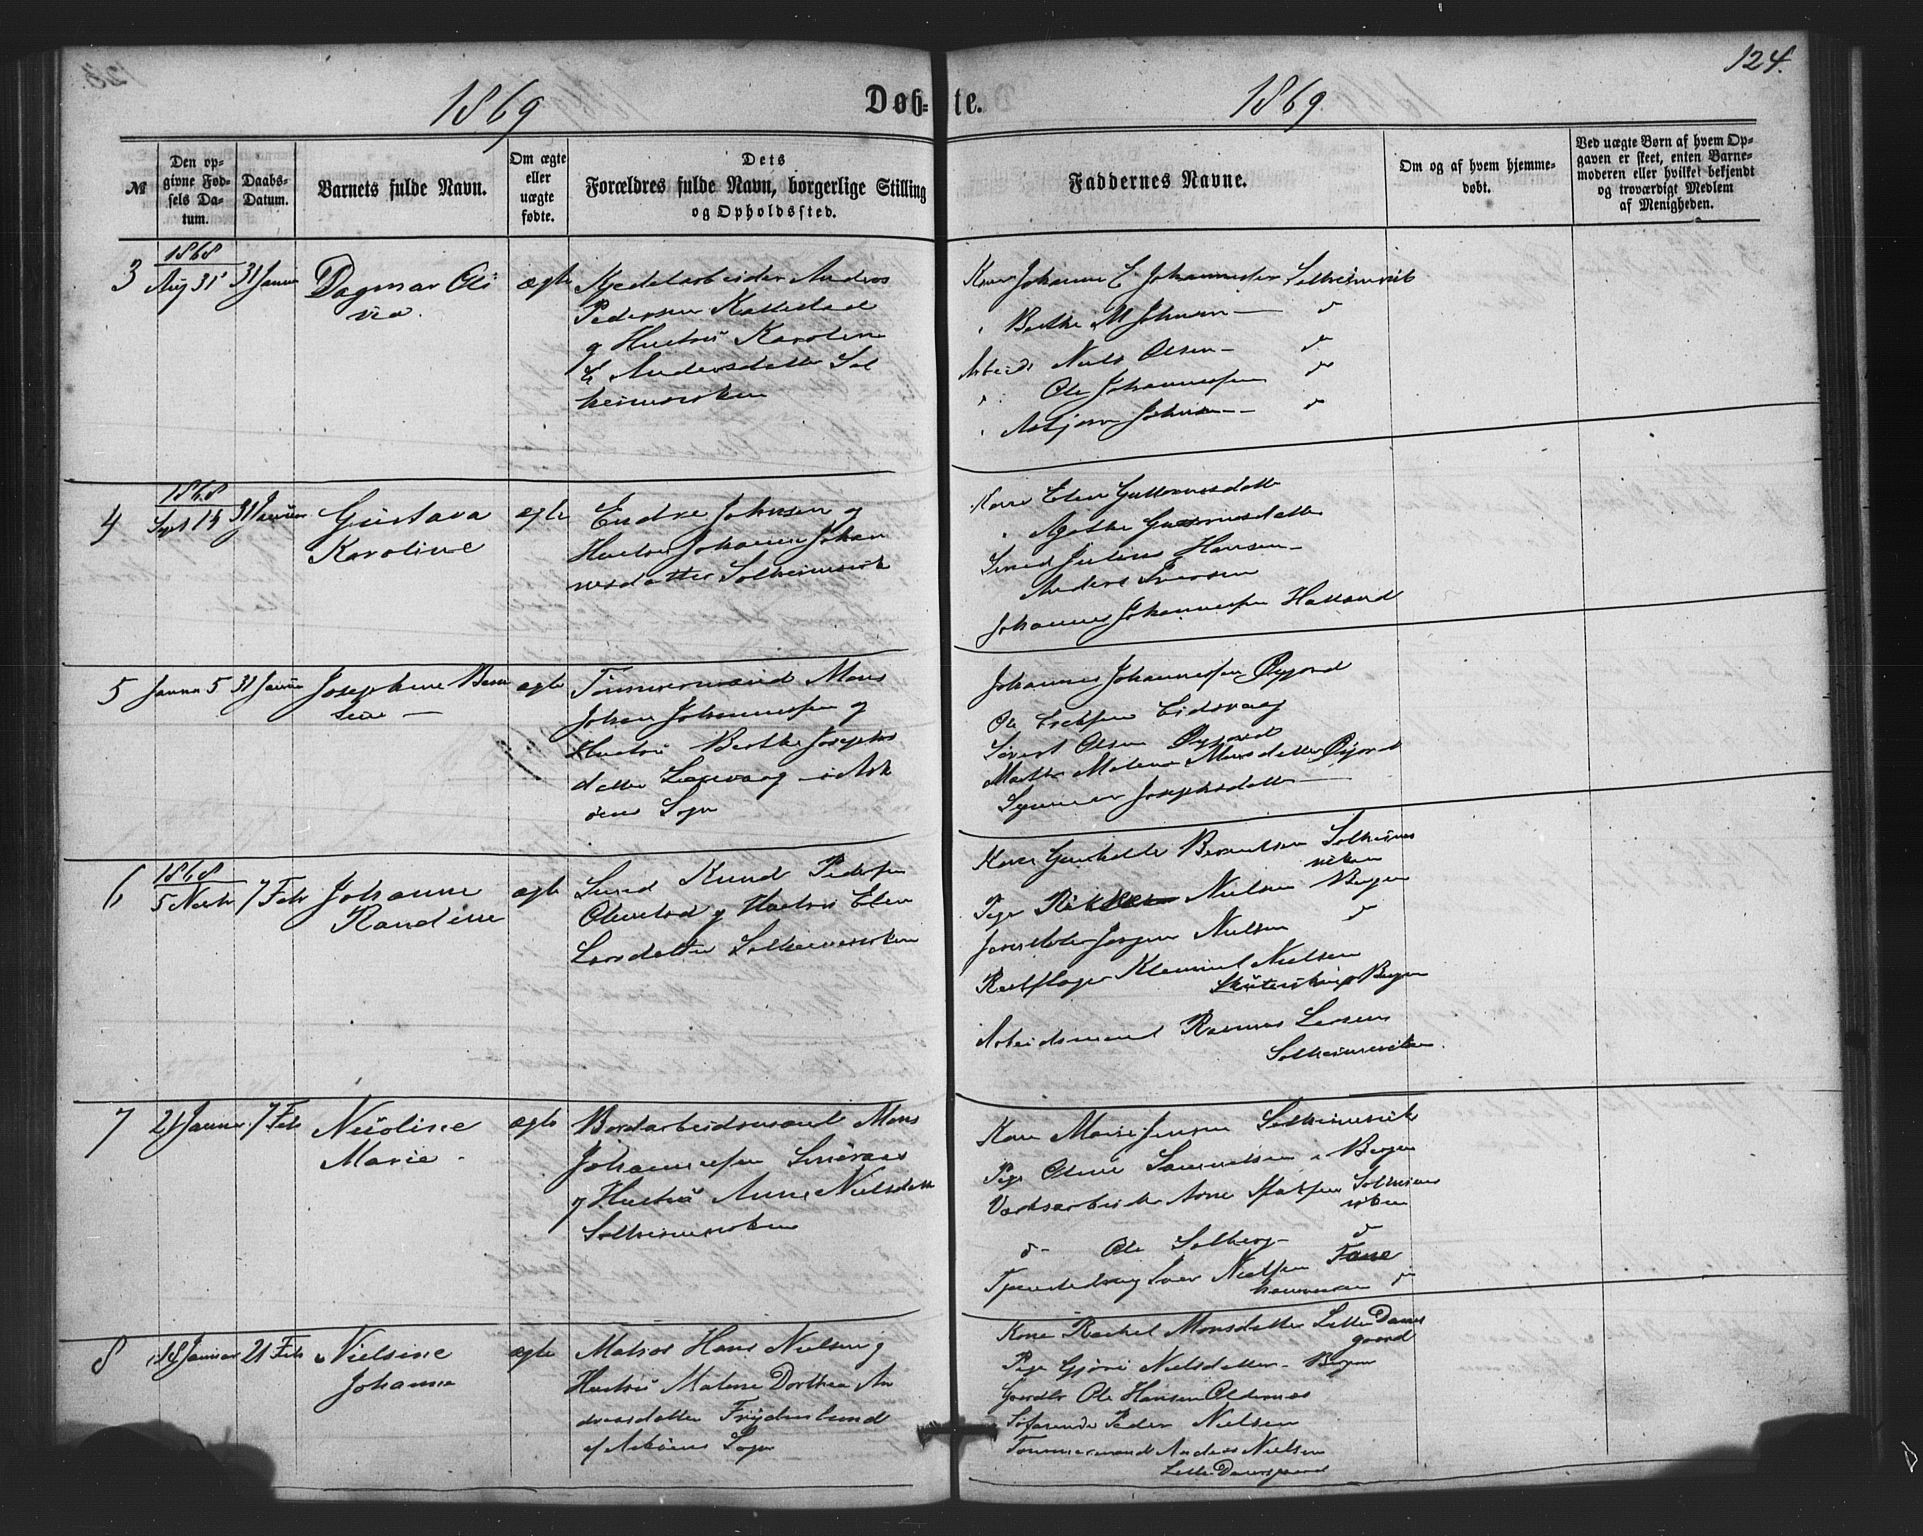 124.
1869
Døb-
te.
1869.
№
Den op-
givne Fød-
sels Da-
tum.
Daabs-
Datum.
Barnets fulde Navn.
Om ægte
eller
uægte
fødte.
Dets
Forældres fulde Navn, borgerlige Stilling
og Opholdssted.
Faddernes Navne.
Om og af hvem hjemme-
døbt.
Ved uægte Børn af hvem Op-
gaven er skeet, enten Barne-
moderen eller hvilket bekjendt
og troværdigt Medlem
af Menigheden.
1868
3 Aug 31 31 Janua
Dagmar Oli
via.
ægte
Kjedelarbeider Anders
Pedersen
g Hustru Karoline
Andersdatter Sol
heimsviken
Kone Johanne E Johannesdr Solheimsvik
Berthe M Johnsen — d
Arbeidr Niels Olsen — d
Ole Johannessen d
Asbjørn Johnsen — d
1868
4 Sept 14 31 Januar
Gustava
Karoline
ægte
Endre Johnsen og
Hustru Johanne Johan
nesdatter Solheimsvik
Kone Elen Guttormsdatter
Agathe Guttormsdatter
Smed Julius Hansen —
Anders Iversen
Johannes Johannessen Halland
5 Janua 5 31 Janua
Josephine Bern
tine —
ægte
Tømmermand Mons
Johan Johannessen og
Hustru Berthe Josephs
datter i Ask
øens Sogn
Johannes Johannessen Øygord
Ole Ericksen Eidsvaag
Sivert Olsen Øygord
Marthe Malene Monsdatter Øygord
Josephsdatter —
1868
6 5 Novbr 7 Febr
Johanne
Randine
ægte
Smed Knud Pedersen
Olenstad g Hustru Elen
Larsdatter Solheimsviken
Kone Gunhilde Berentsen Solheims
viken
Pige Rikke Nielsen Bergen
Jørgen Nielsen d
Reebslager Klemmet Nielsen
Bergen
Arbeidsmand Rasmus Larsen
Solheimsviken.
7 21 Januar 7 Feb
Nicoline
Marie.
ægte
Bordarbeidsmand Mons
Johannessen
g Hustru Anne Nielsdatt
Solheimsviken
Kone Marie Jensen Solheimsvik
Pige Oline Samuelsen Bergen
Værksarbeider Arne Solheims
viken
d — Ole Solberg — d
Tjenestedreng Iver Nielsen
d
8 18 Januar 21 Feb
Nielsine
Johanne
ægte
Matros Hans Nielsen g
Hustru Malene Dorthea An
dreasdatter Frydenlund
af Askøens Sogn
Kone Rachel Monsdatter Lille Dams
gaard
Pige Gjøri Nielsdatter — Bergen
Gaardbr Ole Hansen Oldernæs
Søfarende Peder Nielsen
Tømmermand Anders Nielsen
Lille Damsgaard